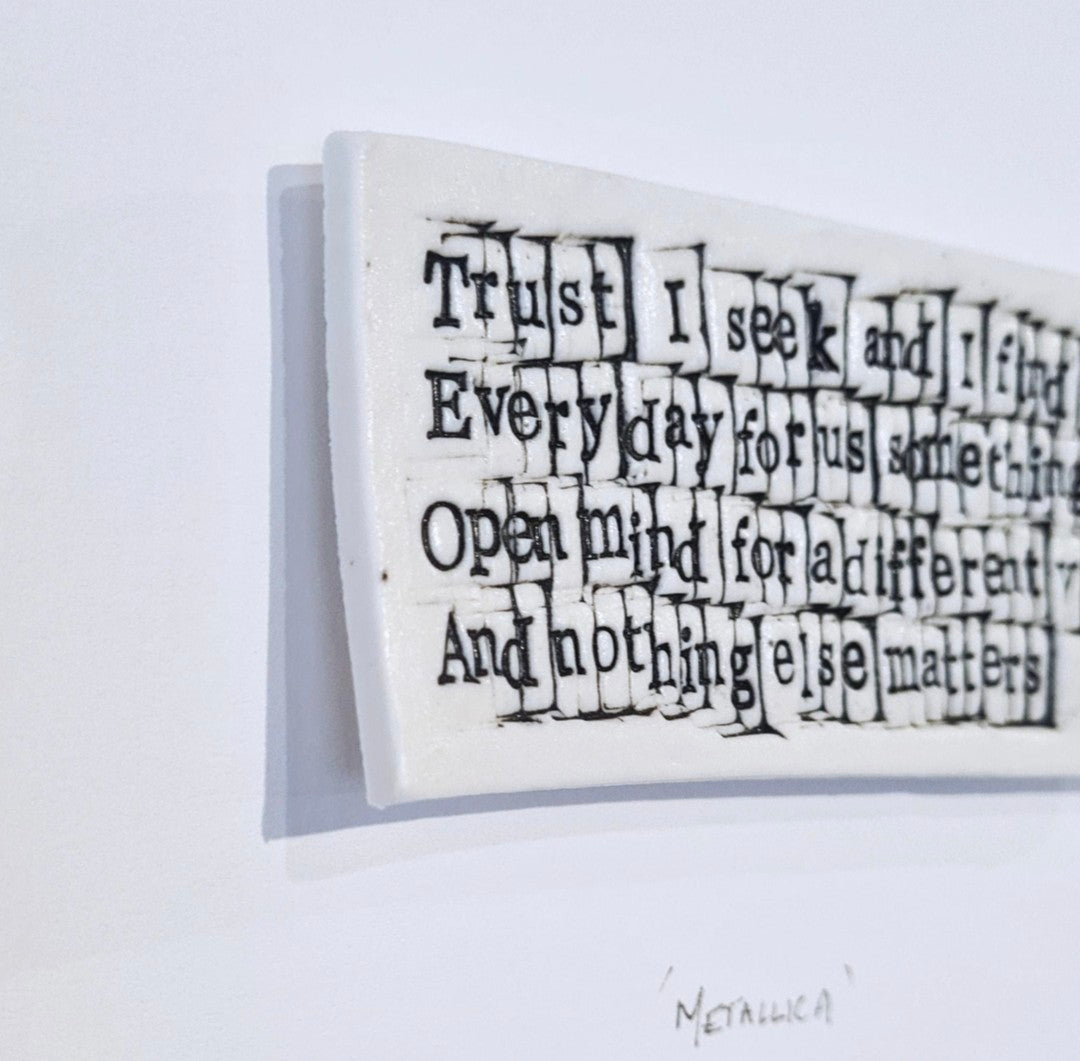 Trust I seek and I find
Every day for us something
Open mind for a different
And nothing else matters
'METALLICA'